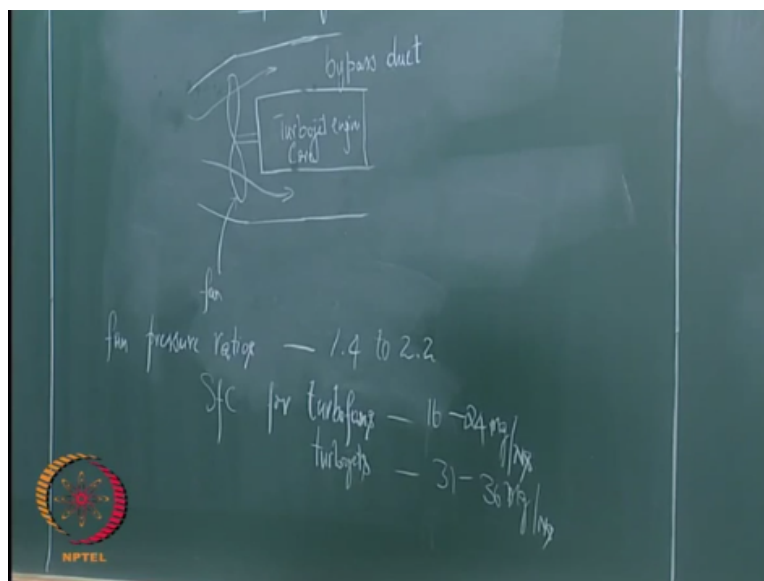 bypass duct
Turbojet engin
Core
fan
fan pressure ratios — 1.4 to 2.2
Sfc for turbofans — 16-24 mg/Ns
turbojets — 31-36 mg/Ns
NPTEL